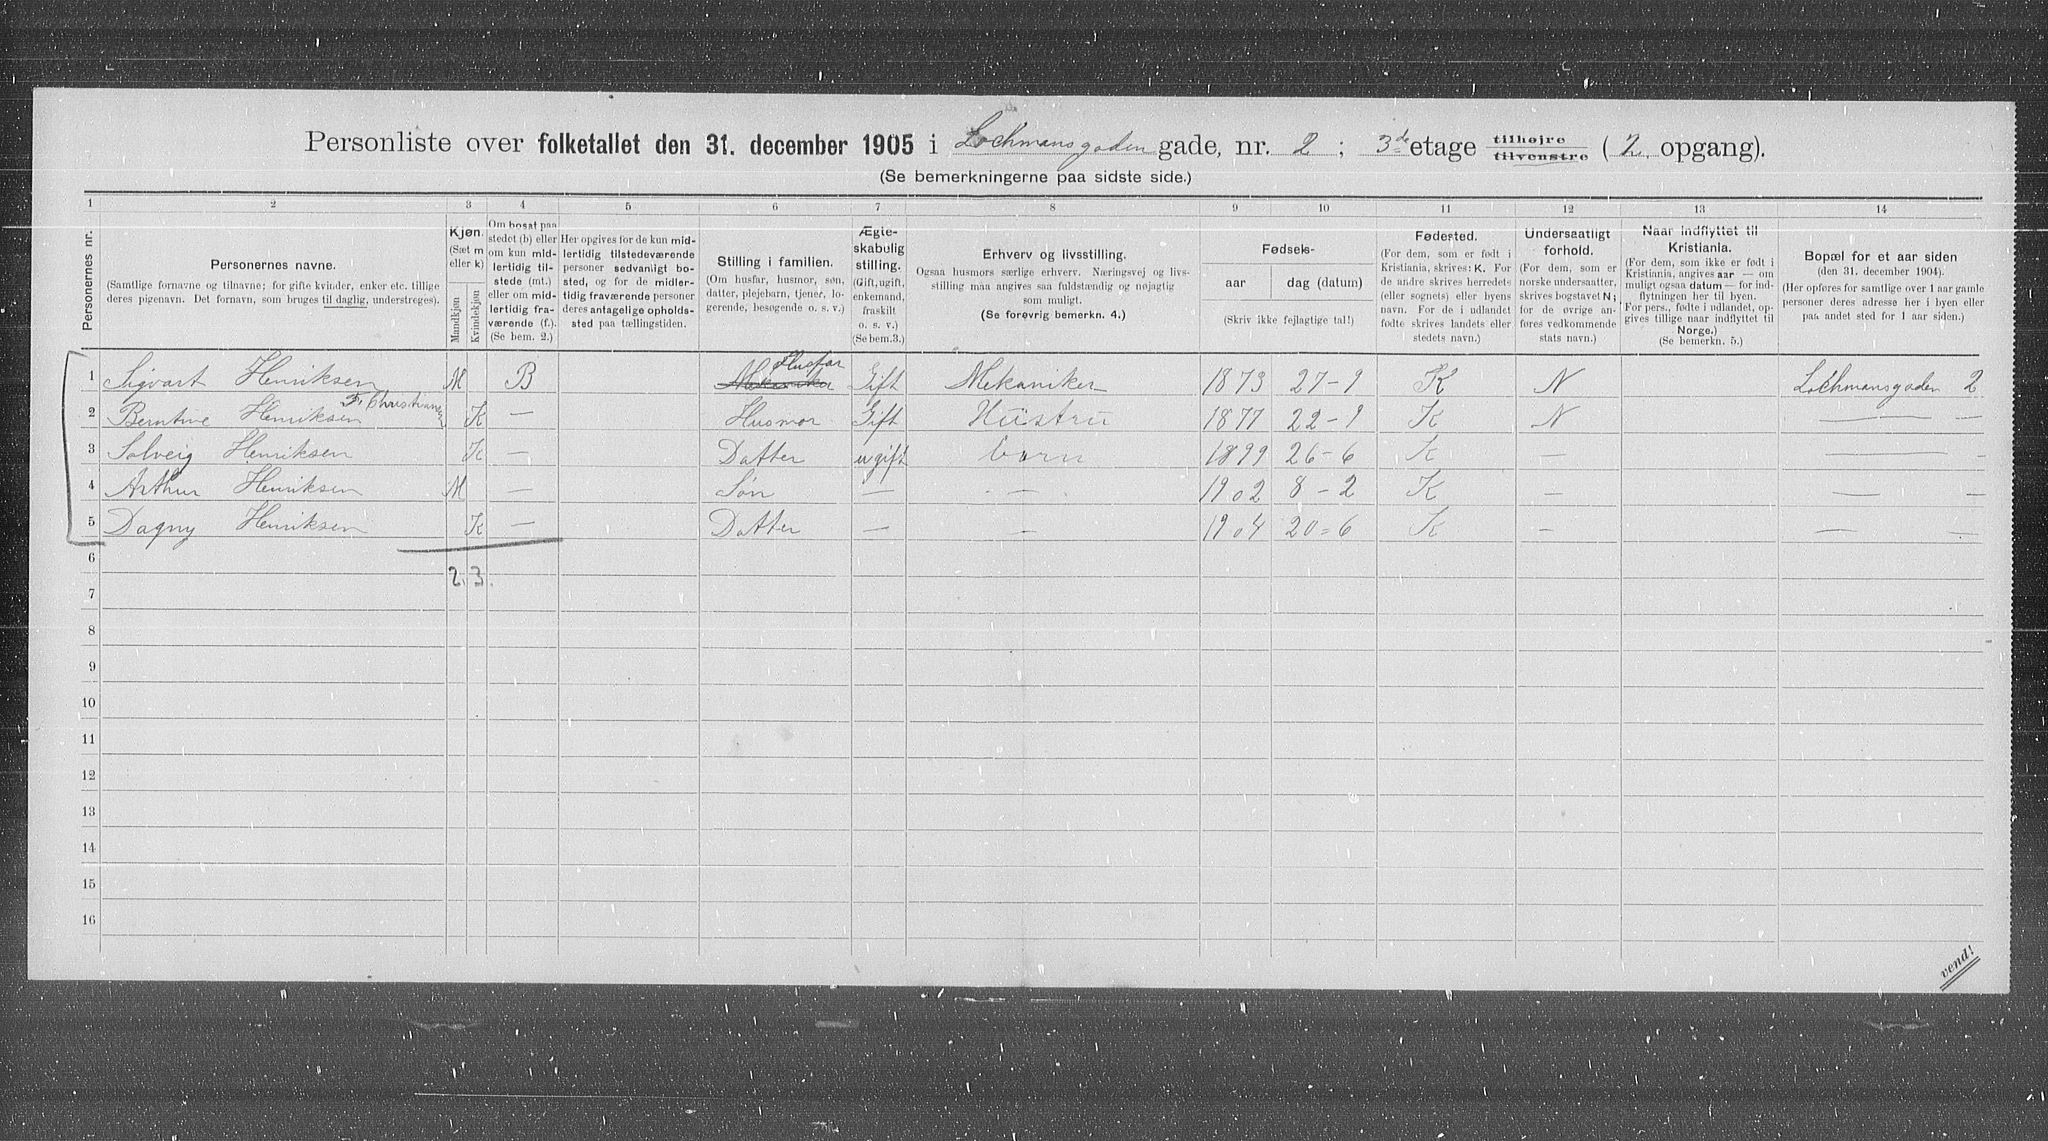 Personliste over folketallet den 31. december 1905 i Lochmansgaden gade, nr. 2 ; 3de etage tilhøjre tilvenstre ( 2. opgang).
(Se bemerkningerne paa sidste side.)
1 2 3 4 5 6 7 8 9 10 11 12 13 14
Personernes nr.
Personernes navne.
(Samtlige fornavne og tilnavne; for gifte kvinder, enker etc. tillige
deres pigenavn. Det fornavn, som bruges til daglig, understreges).
Kjøn.
(Sæt m
eller k)
Mandkjøn
Kvindekjøn
Om bosat paa
stedet (b) eller
om kun mid-
lertidig til-
stede (mt.)
eller om mid-
lertidig fra-
værende (f.).
(Se bem. 2.)
Her opgives for de kun mid-
lertidig tilstedeværende
personer sedvanligt bo-
sted, og for de midler-
tidig fraværende personer
deres antagelige opholds-
sted paa tællingstiden.
Stilling i familien.
(Om husfar, husmor, søn,
datter, plejebarn, tjener, lo-
gerende, besøgende o. s. v.)
Ægte-
skabulig
stilling.
(Gift, ugift,
enkemand,
fraskilt
o. s. v.)
(Se bem.3.)
Erhverv og livsstilling.
Ogsaa husmors særlige erhverv. Næringsvej og livs-
stilling maa angives saa fuldstændig og nøjagtig
som muligt.
(Se forøvrig bemerkn. 4.)
Fødsels-
aar dag (datum)
(Skriv ikke fejlagtige tal!)
Fødested.
(For dem, som er født i
Kristiania, skrives: K. For
de andre skrives herredets
(eller sognets) eller byens
navn. For de i udlandet
fødte skrives landets eller
stedets navn.)
Undersaatligt
forhold.
(For dem, som er
norske undersaatter,
skrives bogstavet N;
for de øvrige an-
føres vedkommende
stats navn.)
Naar indflyttet til
Kristiania.
(For dem, som ikke er født i
Kristiania, angives aar — om
muligt ogsaa datum — for ind-
flytningen her til byen.
For pers., fødte i udlandet, op-
gives tillige naar indflyttet til
Norge.)
(Se bemerkn. 5.)
Bopæl for et aar siden
(den 31. december 1904).
(Her opføres for samtlige over 1 aar gamle
personer deres adresse her i byen eller
paa andet sted for 1 aar siden.)
1 Sigvart Henriksen M B Mekaniker Husfar Gift Mekaniker 1873 27-9 K N Lochmansgaden 2
2 Berntine Henriksen F. Christiansen K — Husmor Gift Hustru 1877 22-9 K N —
3 Solveig Henriksen K — Datter ugift barn 1899 26-6 K — — -
4 Arthur Henriksen M — Søn — - — . 1902 8-2 K — — —
5 Dagny Henriksen K — Datter — — 1904 20=6 K — — —
2. 3.
6
7
8
9
10
11
12
13
14
15
16
vend!